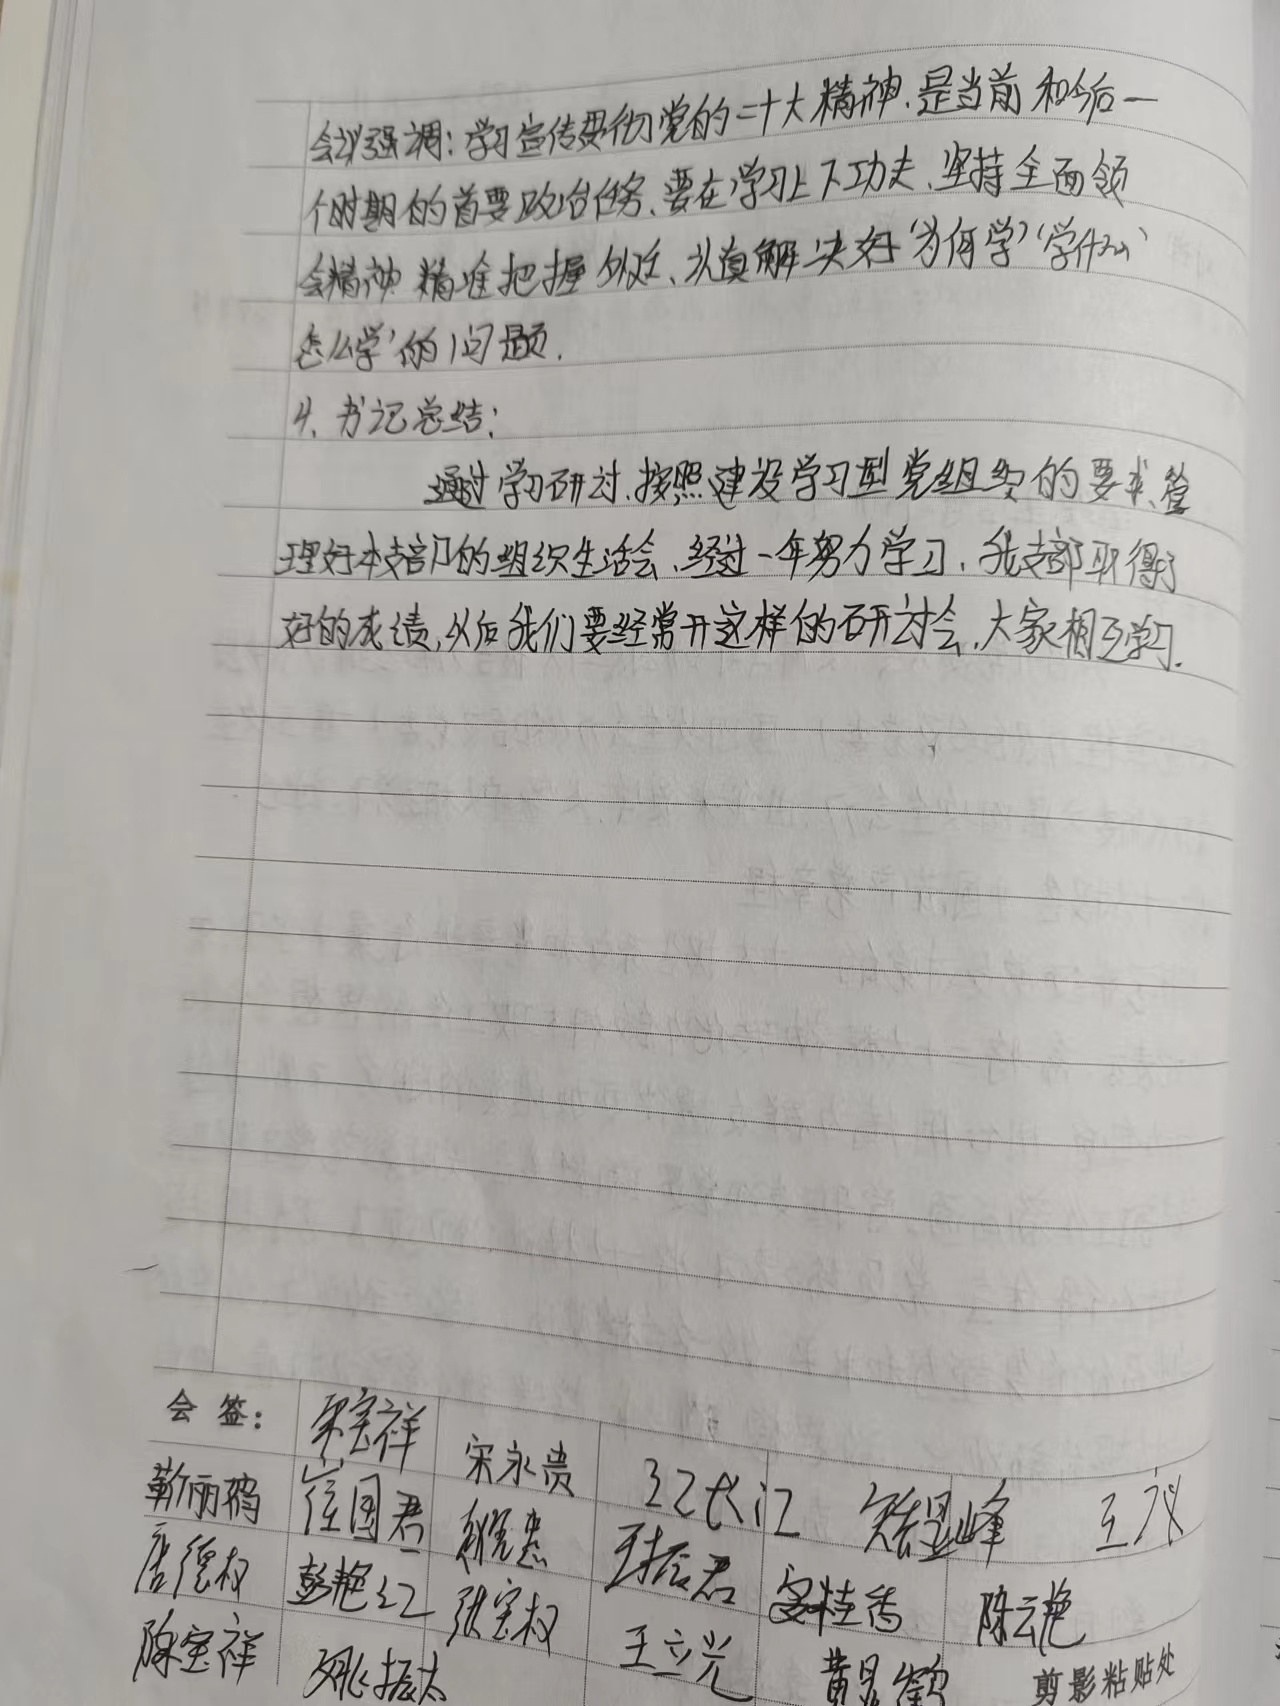 会议强调：学习宣传贯彻党的二十大精神.是当前和今后一
个时期的首要政治任务、要在学习上下功夫、坚持全面领
会精神 精准把握 认真解决好‘为何学’‘学什么’
怎么学’的问题.
4、书记总结：
通过学习研讨.按照建设学习型党组织的要求、管
理好本支部的组织生活会、经过一年努力学习，我支部取得了
好的成绩,以后我们要经常开这样的研讨会,大家相互学习.
会签：
宋宝祥 宋永贵 长江 峰 王
靳丽鸽 崔国君 君
唐德权 彭艳红 张宝权 桂香 陈云艳
陈宝祥 姚振太 王立光 黄昆鹤 剪影粘贴处